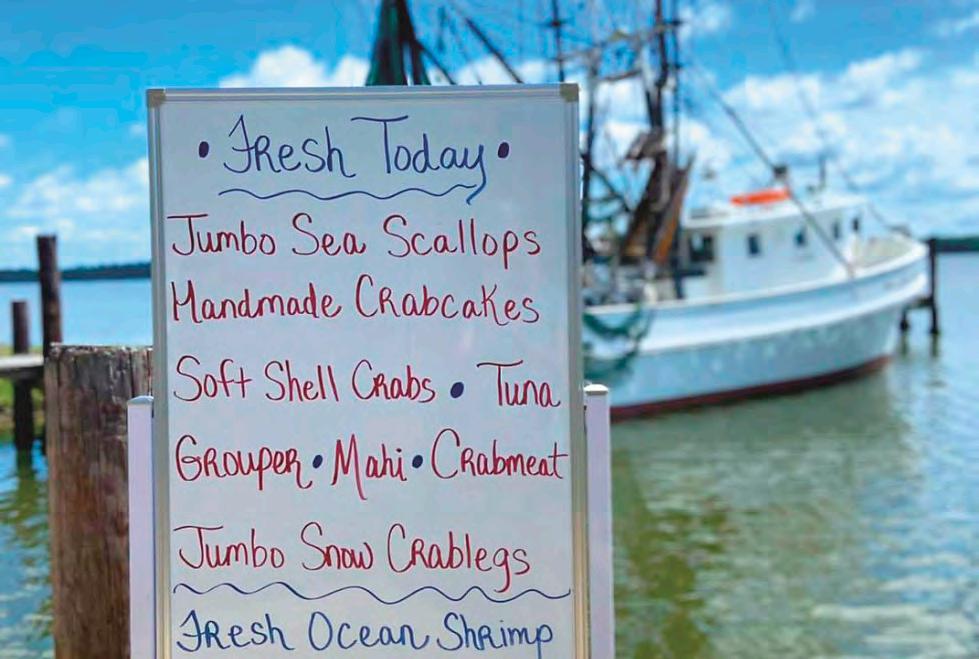 • Fresh Today •
Jumbo Sea Scallops
Handmade Crabcakes
Soft Shell Crabs • Tuna
Grouper • Mahi • Crabmeat
Jumbo Snow Crablegs
Fresh Ocean Shrimp